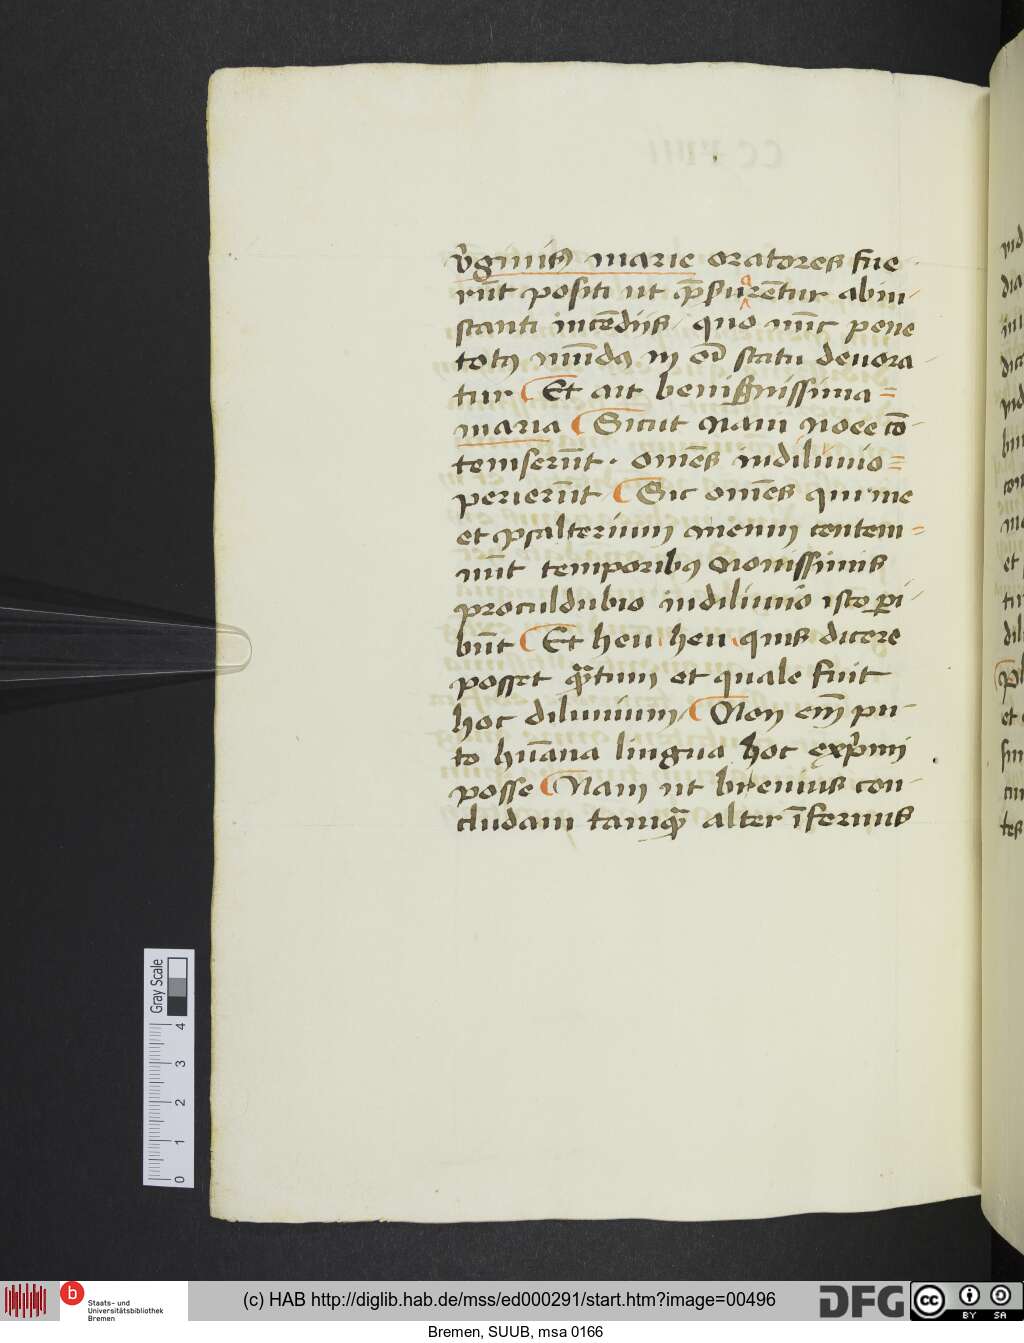 v̕ginis marie oratores fue-
rūt positi ut p̄suarētur ab in-
stanti incēdiis quo nūc pene
totꝰ mundꝰ in oī statu deuora-
tur Et ait benignissima
maria Sicut nam noee cō-
temserūt · omēs indiluuio
perierūt Sic omēs qui me
et psalterium meum contem-
nūt temporibꝰ nouissimis
proculdubio indiluuio isto ꝑi-
būt Et heu heu quis dicere
posset q̄tum et quale fuit
hoc diluuium Non em̄ pu-
to hūana lingua hoc exp̄mi
posse Nam ut breuius con-
cludam tamq̄ alter īfernus
Gray Scale
0 1 2 3 4
b
Staats- und
Universitätsbibliothek
Bremen
(c) HAB http://diglib.hab.de/mss/ed000291/start.htm?image=00496
DFG
cc
BY SA
Bremen, SUUB, msa 0166